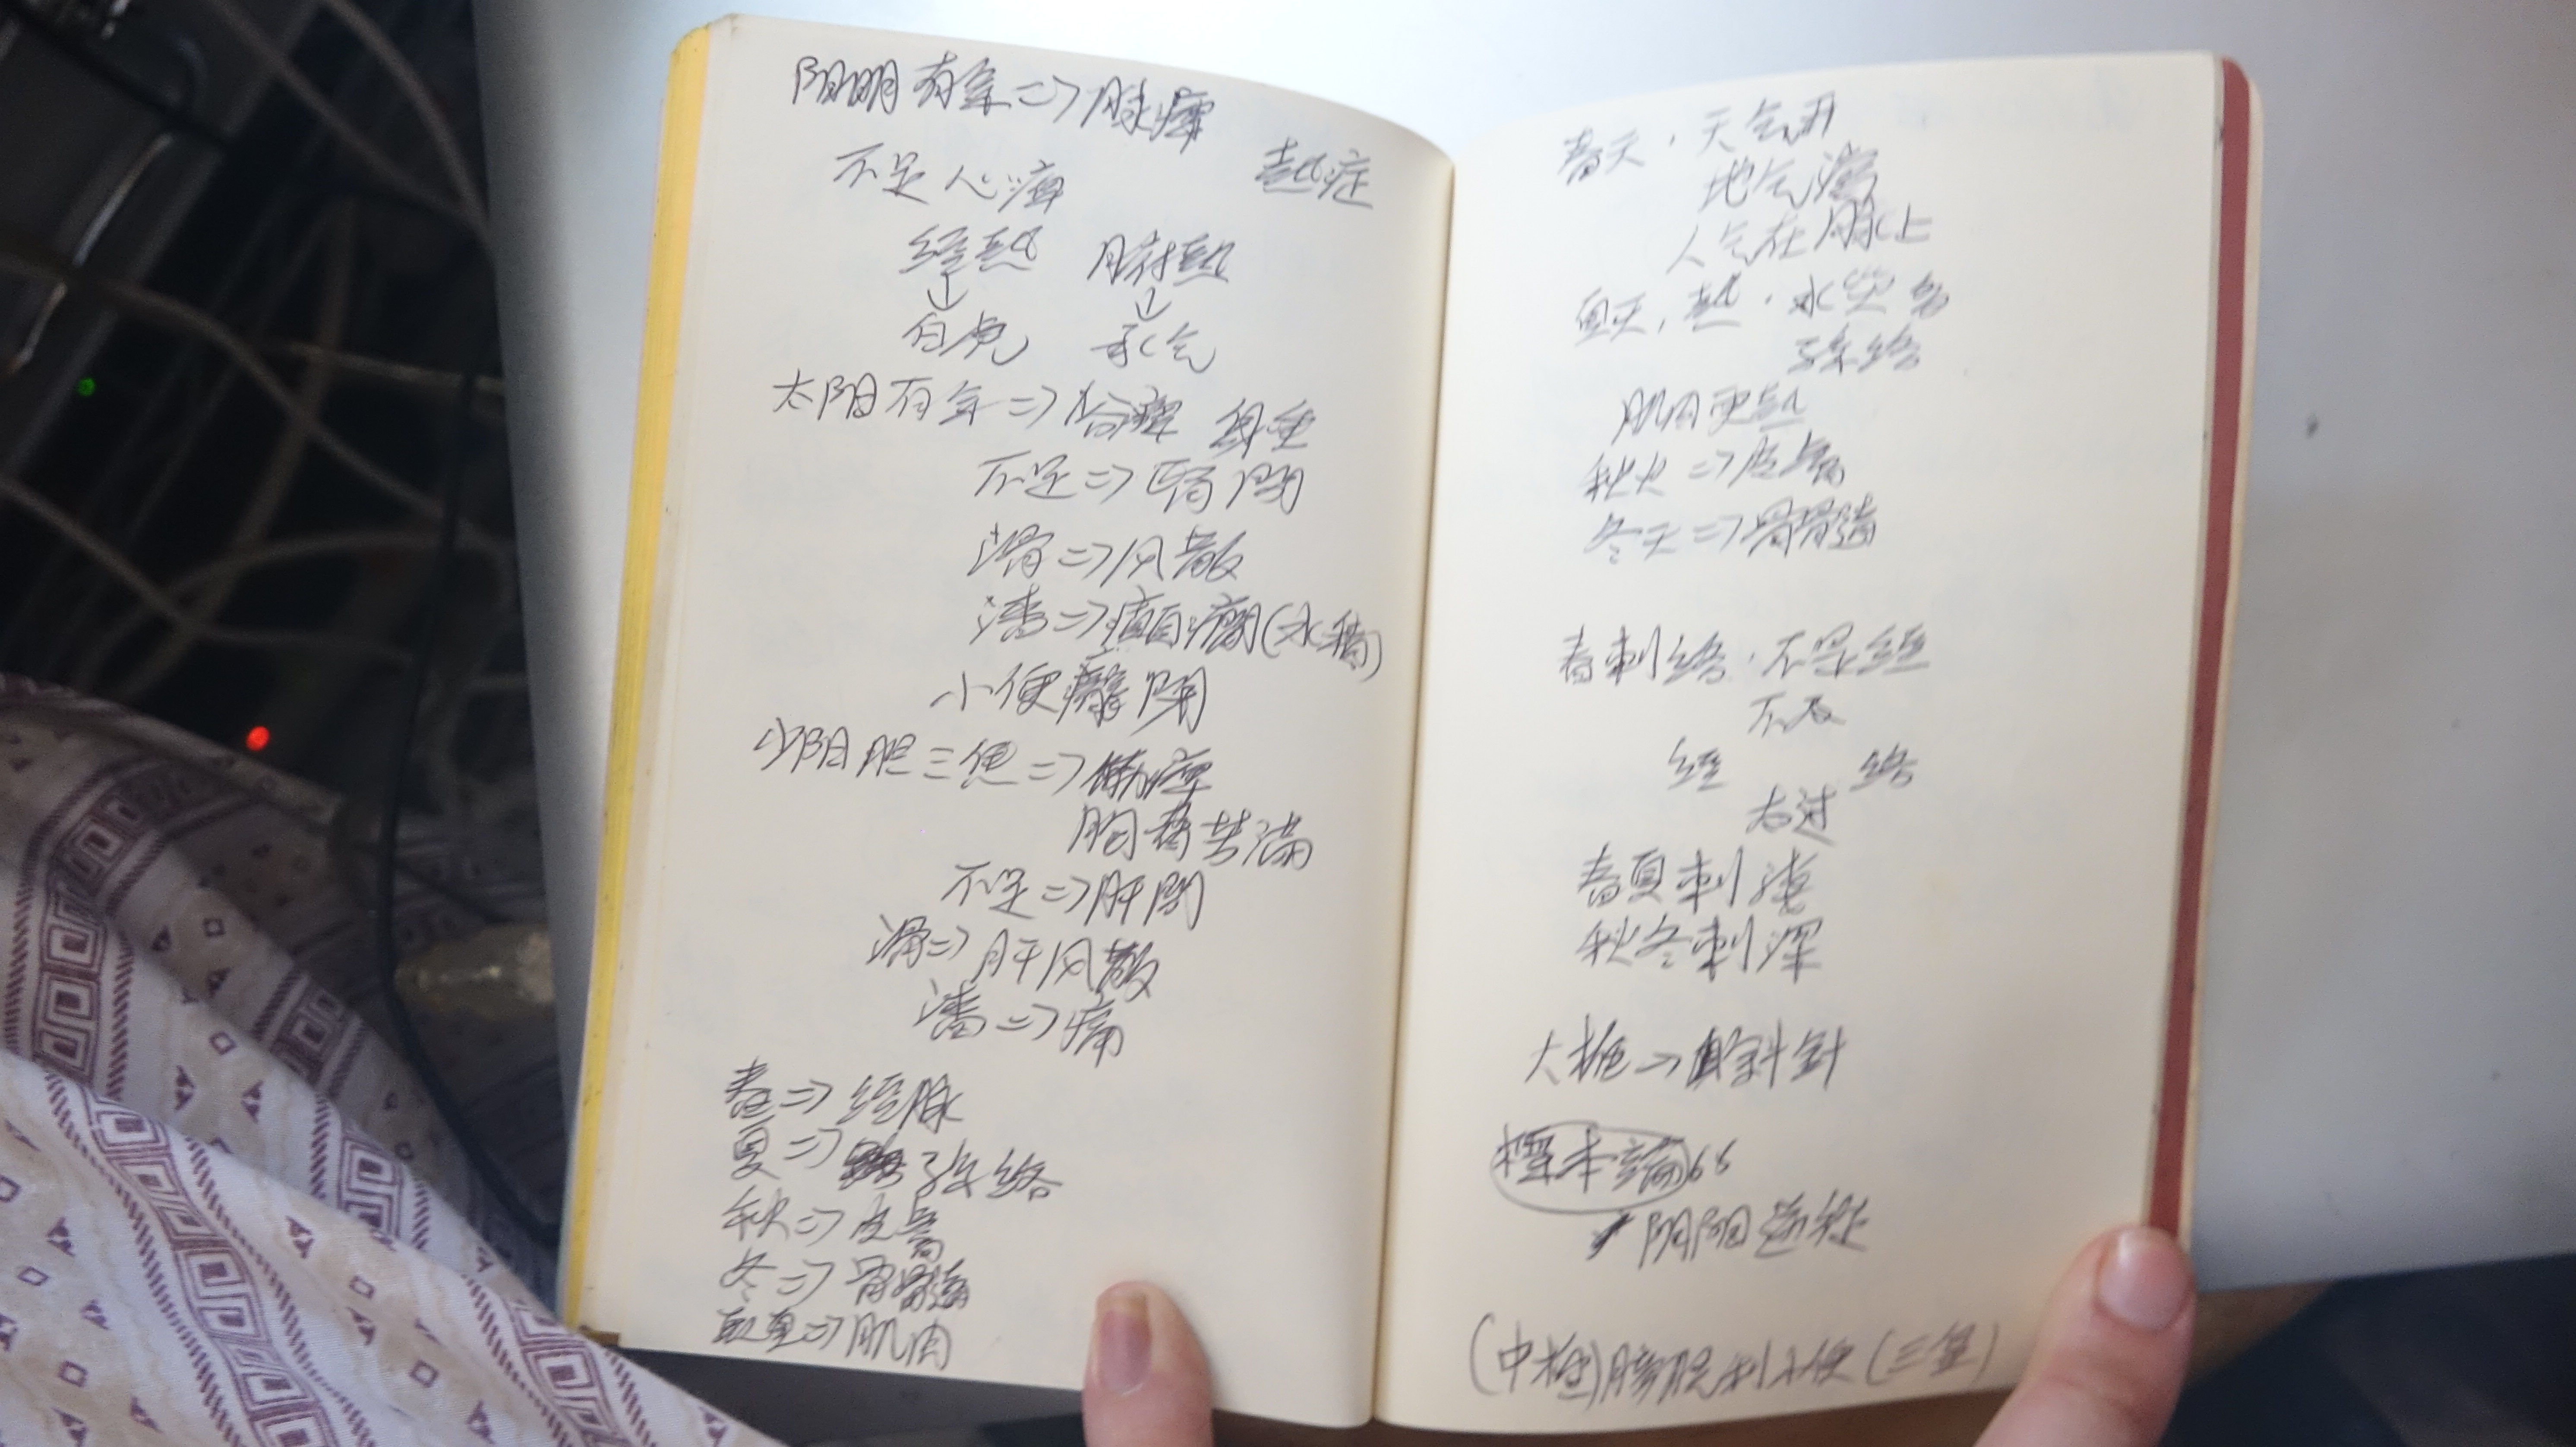 阳明有余⇒脉痹
不足心痹
热症
经热 腑热
↓ ↓
白虎 承气
太阳有余⇒骨痹 身重
不足⇒肾闭
滑⇒风散
濇⇒癲癇(水積)
小便癃闭
少阳胆三便⇒筋痹
胸脅苦满
不足⇒肝闭
滑⇒肝风散
濇⇒痛
春⇒经脉
夏⇒孫络
秋⇒皮膚
冬⇒骨髓
長夏⇒肌肉
春天．天气开
地气瀉
人气在脉上
夏天,热．水
孫络
肌肉更热
秋火⇒皮膚
冬天⇒骨髓
春刺络．不是经
不及
经 络
右过
春夏刺淺
秋冬刺深
大椎→斜针
標本論65
阴阳逆從
(中極)膀胱利小便(三焦)